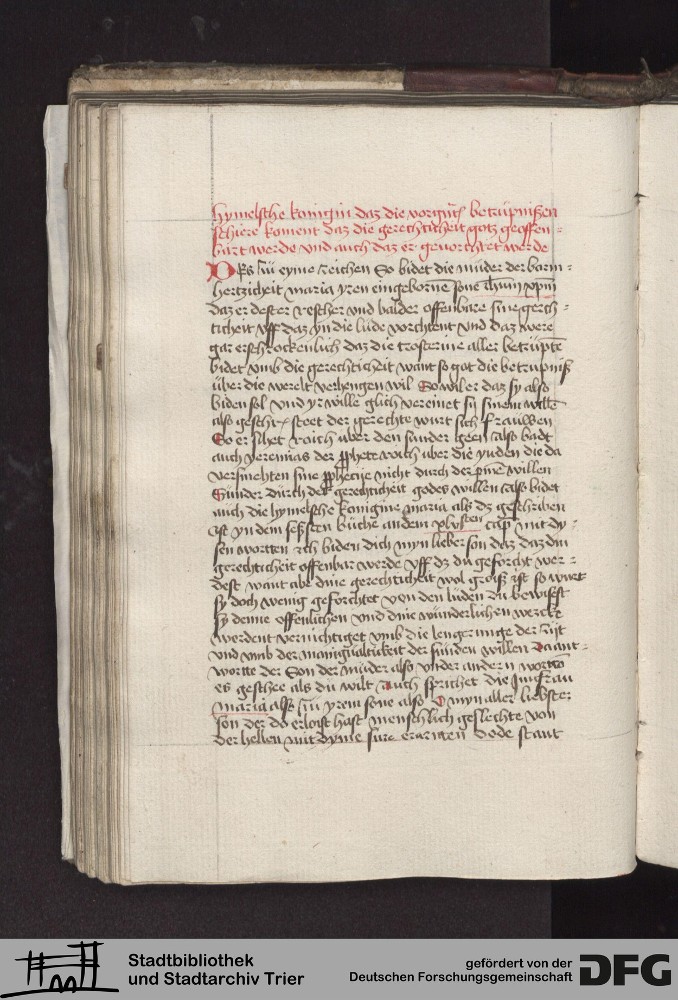 hymelsche konigin daz die vorgnt betrupnißen
schiere koment daz die gerechticheit gotz geoffen-
bart werde vnd auch daz er gevorchtet werde
zu eyme zeichen So bidet die muder der barm-
hertzicheit maria yren eingeborne sone ihum xpm
daz er dester rescher vnd balder offenbare sine gerech-
ticheit vff daz yn die lude vorchtent vnd daz were
gar erschrockenlich daz die trosterine aller betrupte
bidet vmb die gerechticheit want so got die betrupniß
uber die werelt verhengen wil So wil er daz sy also
biden sol vnd yr wille glich vereinet sy sinem wille
also geschr steet der gerechte wirt sich frauwen
So er sihet roich uber den sunder geen also badt
auch yeremias der pphete roich uber die yuden die da
versmehten sine pphecije nicht durch der pine willen
Sunder durch der gerechticheit godes willen also bidet
auch die hymelsche konigine maria als dz geschriben
ist yn dem seßsten buche an dem xlvsten cap mit dy-
sen wortten ich biden dich myn lieber son daz daz din
gerechticheit offenbar werde vff dz du geforcht wer-
dest want abe dine gerechticheit wol groiß ist so wirt
sy doch wenig geforchtet von den luden zu bewisst
sy denne offenlichen vnd dine wunderlichen wercke
werdent vernichtiget vmb die lengerunge der zijt
vnd vmb der manigualtikeit der sunden willen Da ant-
wortte der Son der muder also vnder andern wortte
es geschee als du wilt Auch sprichet die jungfrau
maria alß zu yrem sone also O myn aller liebster
son der du erloist hast menschlich geslechte von
der hellen mit dyme sure dode stant
Stadtbibliothek
und Stadtarchiv Trier
gefördert von der
Deutschen Forschungsgemeinschaft
DFG